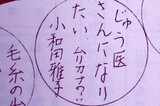 じゅう医
さんになり
たい
小和田雅子
毛糸の